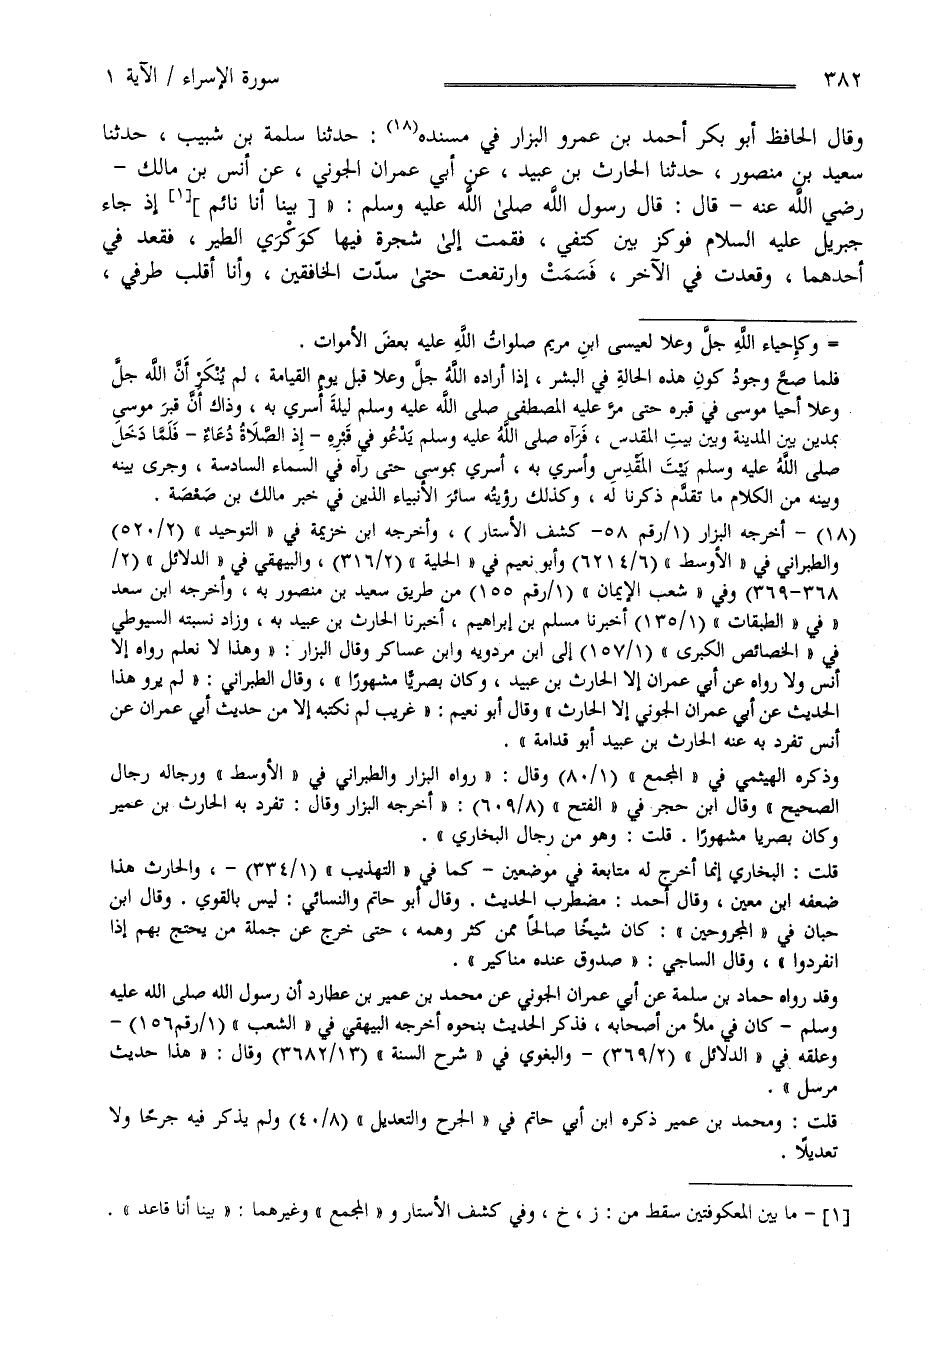 ٣٨٢ سورة الإسراء / الآية ١
وقال الحافظ أبو بكر أحمد بن عمرو البزار في مسنده(١٨) : حدثنا سلمة بن شبيب ، حدثنا
سعيد بن منصور ، حدثنا الحارث بن عبيد ، عن أبي عمران الجوني ، عن أنس بن مالك –
رضي اللَّه عنه – قال : قال رسول اللَّه صلى اللَّه عليه وسلم : « [ بينا أنا نائم ][١] إذ جاء
جبريل عليه السلام فوكز بين كتفي ، فقمت إلى شجرة فيها كوَكْرَي الطير ، فقعد في
أحدهما ، وقعدت في الآخر ، فَسَمَتْ وارتفعت حتى سدّت الخافقين ، وأنا أقلب طرفي ،
= وكإحياء اللَّهِ جلَّ وعلا لعيسى ابنِ مريم صلواتُ اللَّهِ عليه بعضَ الأموات .
فلما صحَّ وجودُ كونِ هذه الحالةِ في البشر ، إذا أراده اللَّهُ جلَّ وعلا قبل يوم القيامة ، لم يُنْكَرْ أَنَّ اللَّه جلَّ
وعلا أحيا موسى في قبره حتى مرَّ عليه المصطفى صلى اللَّه عليه وسلم ليلةَ أُسري به ، وذاك أنَّ قبرَ موسى
بمدين بين المدينة وبين بيتِ المقدس ، فَرَآه صلى اللَّهُ عليه وسلم يَدْعُو في قَبْرِهِ – إذ الصَّلَاةُ دُعَاءٌ – فَلَمَّا دَخَلَ
صلى اللَّهُ عليه وسلم بَيْتَ المَقْدِسِ وأسري به ، أسري بموسى حتى رآه في السماء السادسة ، وجرى بينه
وبينه من الكلام ما تقدَّم ذكرنا له ، وكذلك رؤيتُه سائرَ الأنبياء الذين في خبر مالك بن صَعْصَة .
(١٨) – أخرجه البزار (١/رقم ٥٨– كشف الأستار ) ، وأخرجه ابن خزيمة في « التوحيد » (٥٢٠/٢)
والطبراني في « الأوسط » (٦٢١٤/٦) وأبو نعيم في « الحلية » (٣١٦/٢) ، والبيهقي في « الدلائل » (٢/
٣٦٨–٣٦٩) وفي « شعب الإيمان » (١/رقم ١٥٥) من طريق سعيد بن منصور به ، وأخرجه ابن سعد
« في « الطبقات » (١٣٥/١) أخبرنا مسلم بن إبراهيم ، أخبرنا الحارث بن عبيد به ، وزاد نسبته السيوطي
في « الخصائص الكبرى » (١٥٧/١) إلى ابن مردويه وابن عساكر وقال البزار : « وهذا لا نعلم رواه إلا
أنس ولا رواه عن أبي عمران إلا الحارث بن عبيد ، وكان بصريًّا مشهورًا » ، وقال الطبراني : « لم يرو هذا
الحديث عن أبي عمران الجوني إلا الحارث » وقال أبو نعيم : « غريب لم نكتبه إلا من حديث أبي عمران عن
أنس تفرد به عنه الحارث بن عبيد أبو قدامة » .
وذكره الهيثمي في « المجمع » (٨٠/١) وقال : « رواه البزار والطبراني في « الأوسط » ورجاله رجال
الصحيح » وقال ابن حجر في « الفتح » (٦٠٩/٨) : « أخرجه البزار وقال : تفرد به الحارث بن عمير
وكان بصريا مشهورًا . قلت : وهو من رجال البخاري » .
قلت : البخاري إنما أخرج له متابعة في موضعين – كما في « التهذيب » (٣٣٤/١) – ، والحارث هذا
ضعفه ابن معين ، وقال أحمد : مضطرب الحديث . وقال أبو حاتم والنسائي : ليس بالقوي . وقال ابن
حبان في « المجروحين » : كان شيخًا صالحًا ممن كثر وهمه ، حتى خرج عن جملة من يحتج بهم إذا
انفردوا » ، وقال الساجي : « صدوق عنده مناكير » .
وقد رواه حماد بن سلمة عن أبي عمران الجوني عن محمد بن عمير بن عطارد أن رسول الله صلى الله عليه
وسلم – كان في ملأ من أصحابه ، فذكر الحديث بنحوه أخرجه البيهقي في « الشعب » (١/رقم١٥٦) –
وعلقه في « الدلائل » (٣٦٩/٢) – والبغوي في « شرح السنة » (٣٦٨٢/١٣) وقال : « هذا حديث
مرسل » .
قلت : ومحمد بن عمير ذكره ابن أبي حاتم في « الجرح والتعديل » (٤٠/٨) ولم يذكر فيه جرحًا ولا
تعديلًا .
[١] – ما بين المعكوفتين سقط من : ز ، خ ، وفي كشف الأستار و « المجمع » وغيرهما : « بينا أنا قاعد » .